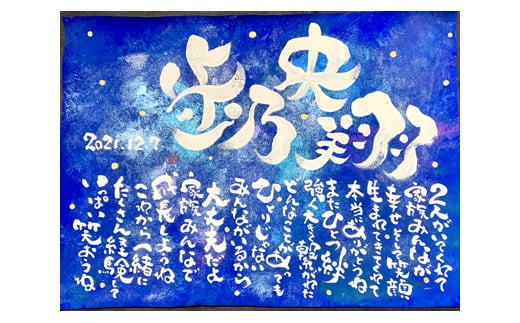 央翔
歩乃
2021.12.7
2人がいてくれて
家族みんなが
幸せいっぱい笑顔に
生まれてきてくれて
本当にありがとうね
またひとつ絆
強く大きく
どんなことがあっても
ひとりじゃない
みんながいるから
大丈夫だよ
家族みんなで
成長しようね
これから一緒に
たくさん経験して
いっぱい笑おうね